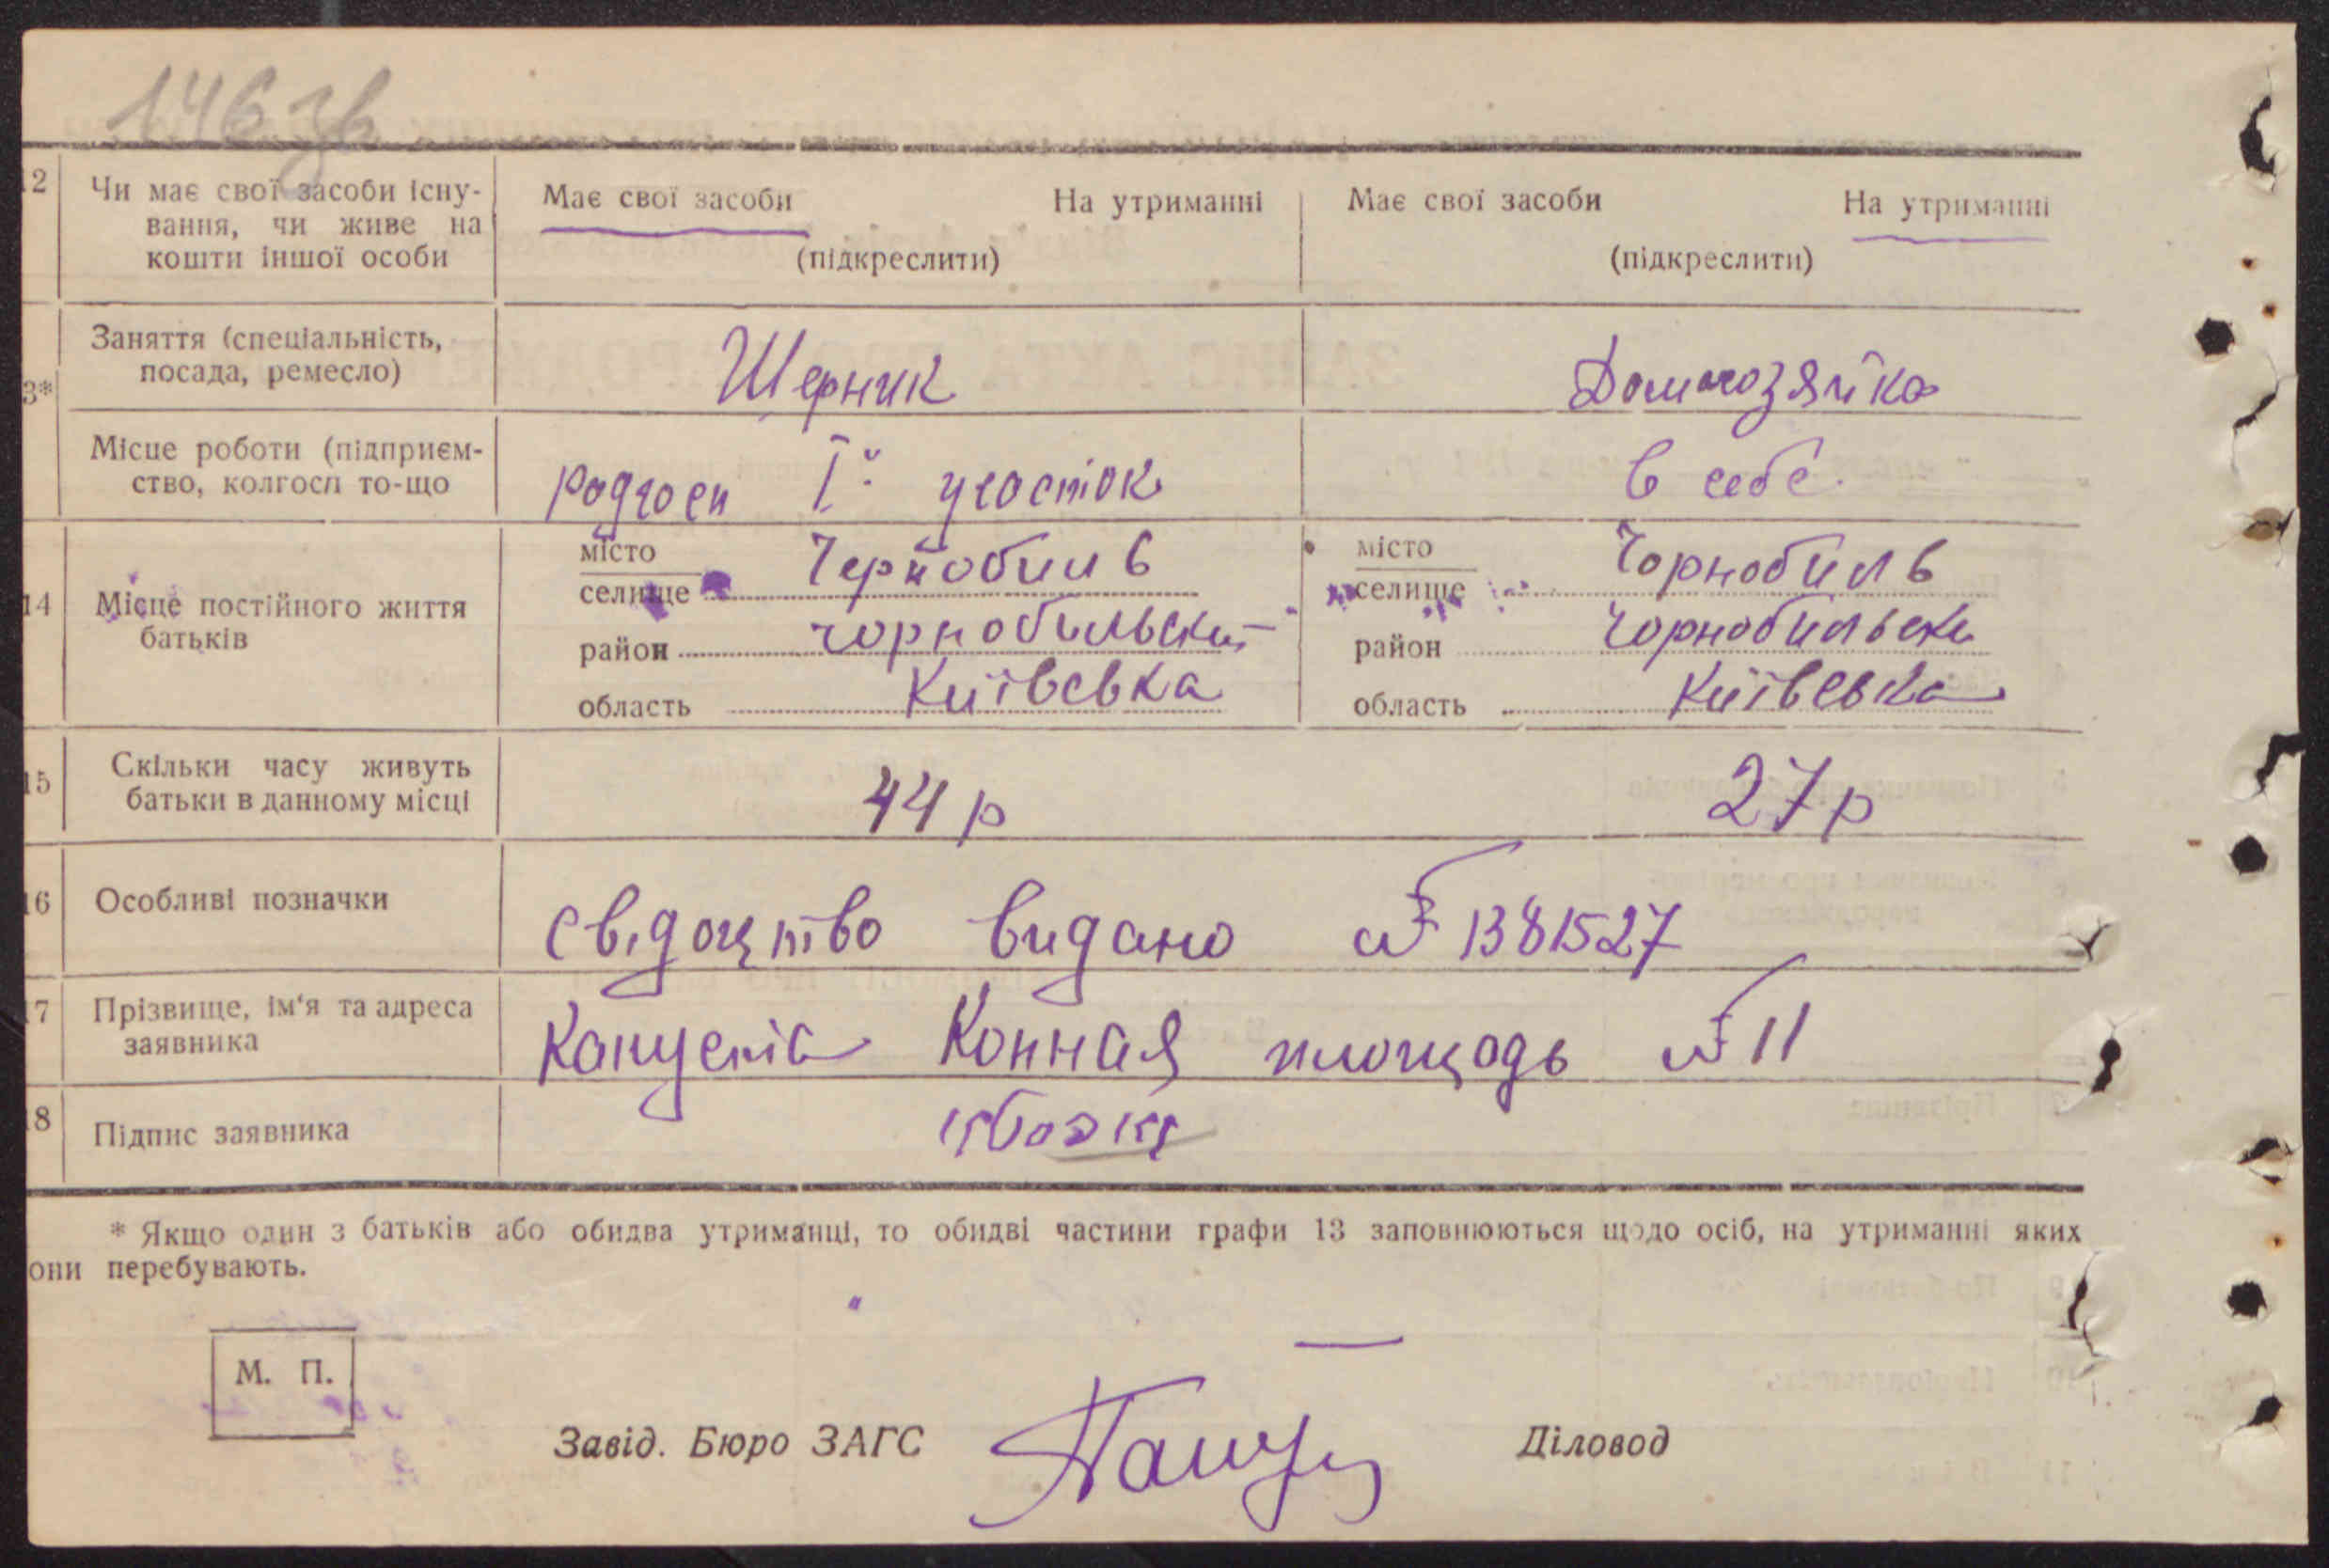 146 зв
12 Чи має свої засоби існу-
вання, чи живе на
кошти іншої особи
Має свої засоби На утриманні
(підкреслити)
Має свої засоби На утриманні
(підкреслити)
3* Заняття (спеціальність,
посада, ремесло)
Шерник
Домогозяйка
Місце роботи (підприєм-
ство, колгосп то-що
Радгосп І й участок
в себе.
14 Місце постійного життя
батьків
місто
селище
Чернобиль
район Чорнобильски
область Київська
місто
селище
Чорнобиль
район Чорнобильски
область Київська
15 Скільки часу живуть
батьки в данному місці
44 р
27 р
16 Особливі позначки
Свідоцтво видано № 1381527
17 Прізвище, ім'я та адреса
заявника
Конная площадь № 11
18 Підпис заявника
* Якщо один з батьків або обидва утриманці, то обидві частини графи 13 заповнюються щодо осіб, на утриманні яких
они перебувають.
М. П.
Завід. Бюро ЗАГС
Діловод